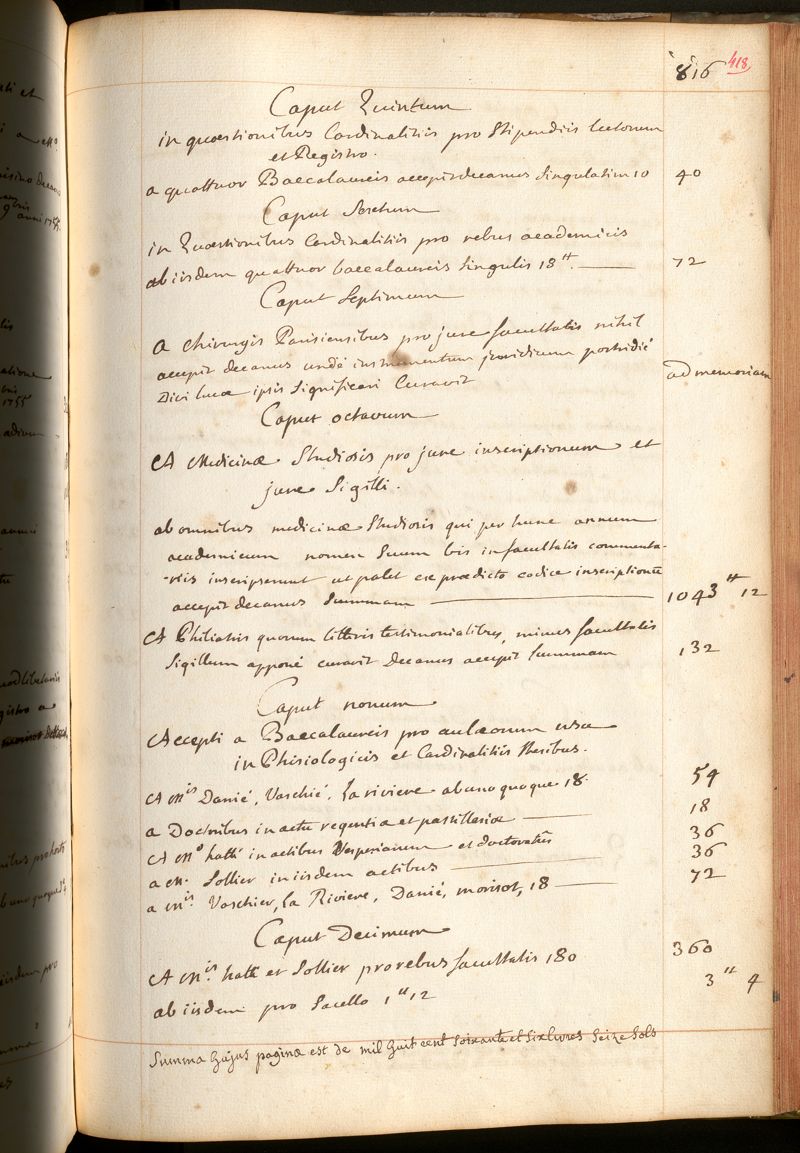 816 418
Caput Quintum
in quæstionibus Cardinalitiis pro Stipendiis lectorum
et Registro.
a quattuor Baccalaureis accepit decanus singulatim 10 40
Caput Sextum
in Quæstionibus Cardinalitiis pro rebus academicis
ab iisdem quattuor baccalaureis singulis 18  tt. 72
Caput Septimum
a chirurgis Parisiensibus pro jure facultatis nihil
accepit decanus unde instrumentum juridicum postridie
Divi lucæ ipsis significari Curavit ad memoriam
Caput octavum
A Medicinæ Studiosis pro jure inscriptionum et
jure Sigilli.
ab omnibus medicinæ Studiosis qui per hunc annum
academicum nomen Suum bis in facultatis commenta-
-riis inscripserunt ut patet ex prædicto codice inscriptionū
accepit decanus Summam 1043 tt 12
A Philiatris quorum litteris testimonialibus, minus facultatis
Sigillum apponi curavit Decanus accepit Summam 132
Caput nonum
Accepti a Baccalaureis pro aulæorum usu
in Phisiologicis et Cardinalitiis thesibus.
A mris Danié, Vaschié, la riviere ab unoquoque 18 54
a Doctoribus in actu regentiæ et pastillariæ 18
A mo hatté in actibus Vesperiarum et doctoratûs 36
a m. Sollier in iisdem actibus 36
a mris Vaschier, la Riviere, Danié, morisot, 18 72
Caput Decimum
A mris hatté et Sollier pro rebus facultatis 180 360
ab iisdem pro Sacello 1 tt 12 3 tt 4
Summa hujus paginæ est de mil huit cent Soixante et Six livres Seize Sols